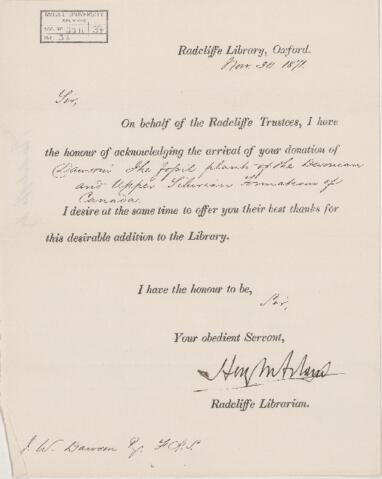 McGILL UNIVERSITY
ARCHIVES
ACC. NO. 2211
REF. 34
Radcliffe Library, Oxford.
Nov. 30 1871.
Sir,
On behalf of the Radcliffe Trustees, I have
the honour of acknowledging the arrival of your donation of
Dawson The fossil plants of the Devonian
and Upper Silurian Formations of
Canada.
I desire at the same time to offer you their best thanks for
this desirable addition to the Library.
I have the honour to be,
Sir,
Your obedient Servant,
Radcliffe Librarian.
J. W. Dawson Esq. F.R.S.